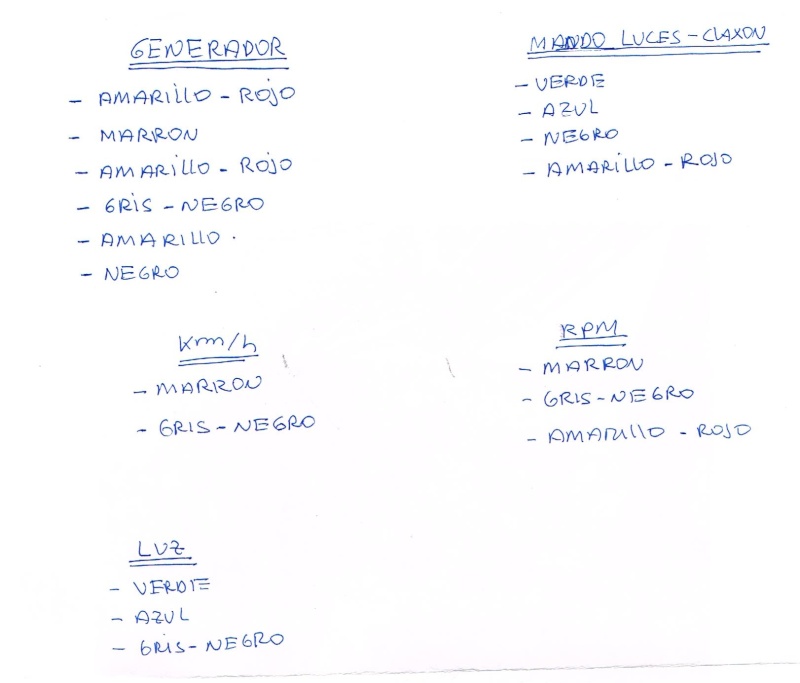 GENERADOR
- AMARILLO - ROJO
- MARRON
- AMARILLO - ROJO
- GRIS - NEGRO
- AMARILLO .
- NEGRO
MANDO LUCES - CLAXON
- VERDE
- AZUL
- NEGRO
- AMARILLO - ROJO
Km/h
- MARRON
- GRIS - NEGRO
RPM
- MARRON
- GRIS - NEGRO
- AMARILLO - ROJO
LUZ
- VERDE
- AZUL
- GRIS - NEGRO